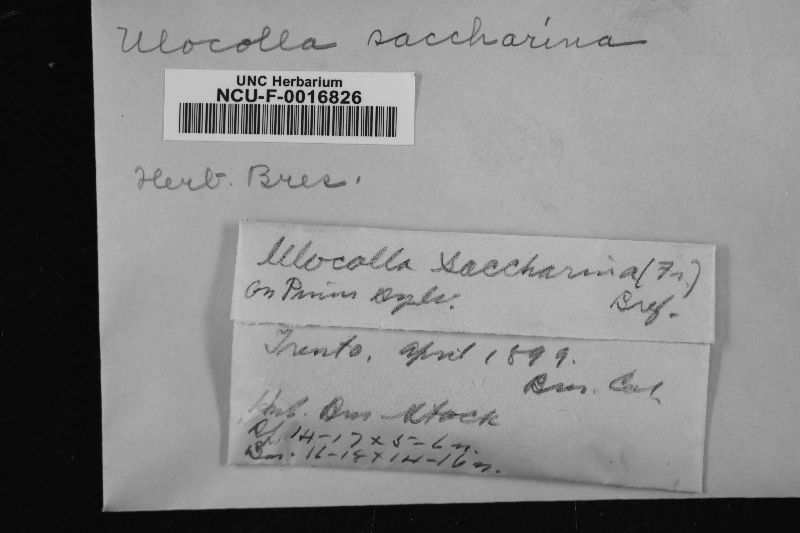 Ulocolla saccharina
UNC Herbarium
NCU-F-0016826
Herb. Bres.
Ulocolla saccharina (Fr.)
on Pinus Sylv. Bref.
Trento, April 1899.
Bres. Col.
Herb. Bres. Stock
Sp. 14-17 x 5-6 µ.
Bas. 16-18 x 14-16 µ.